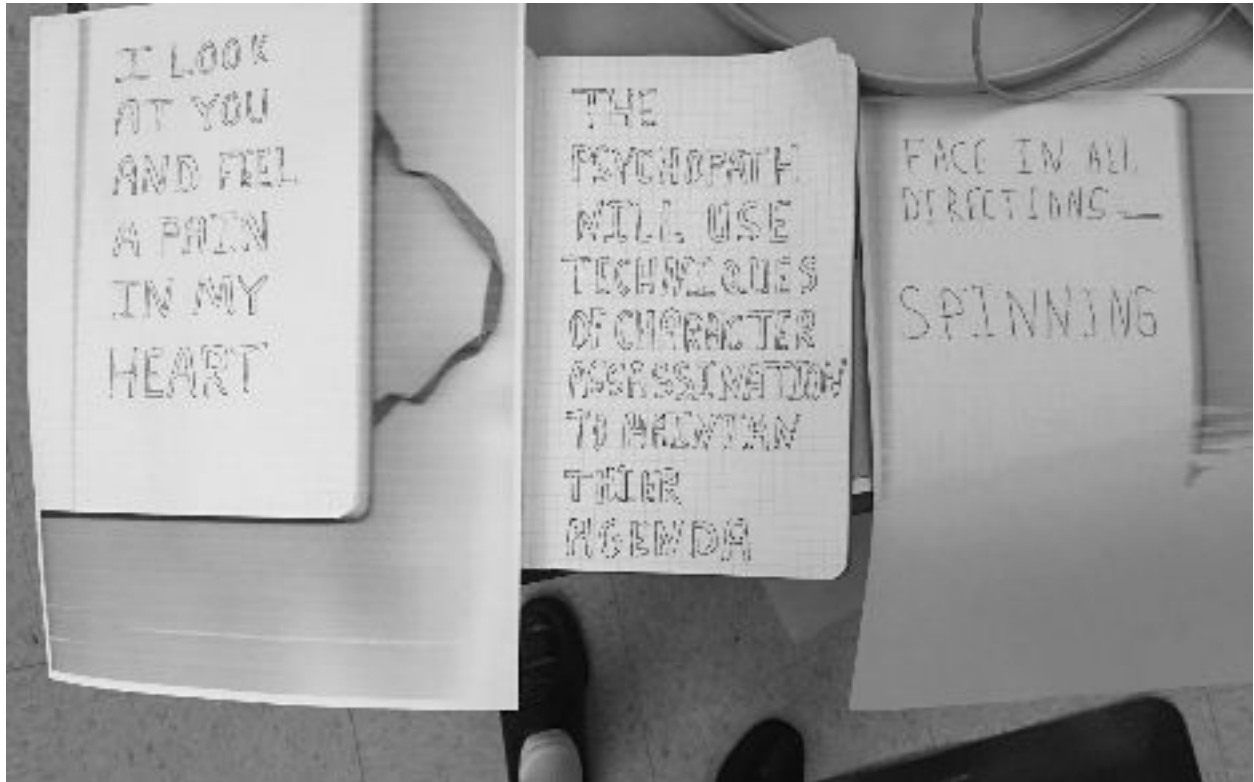 I LOOK
AT YOU
AND FEEL
A PAIN
IN MY
HEART
THE
PSYCHOPATH
WILL USE
TECHNIQUES
OF CHARACTER
ASSASSINATION
TO MAINTIAN
THIER
AGENDA
FACE IN ALL
DIRECTIONS
SPINNING